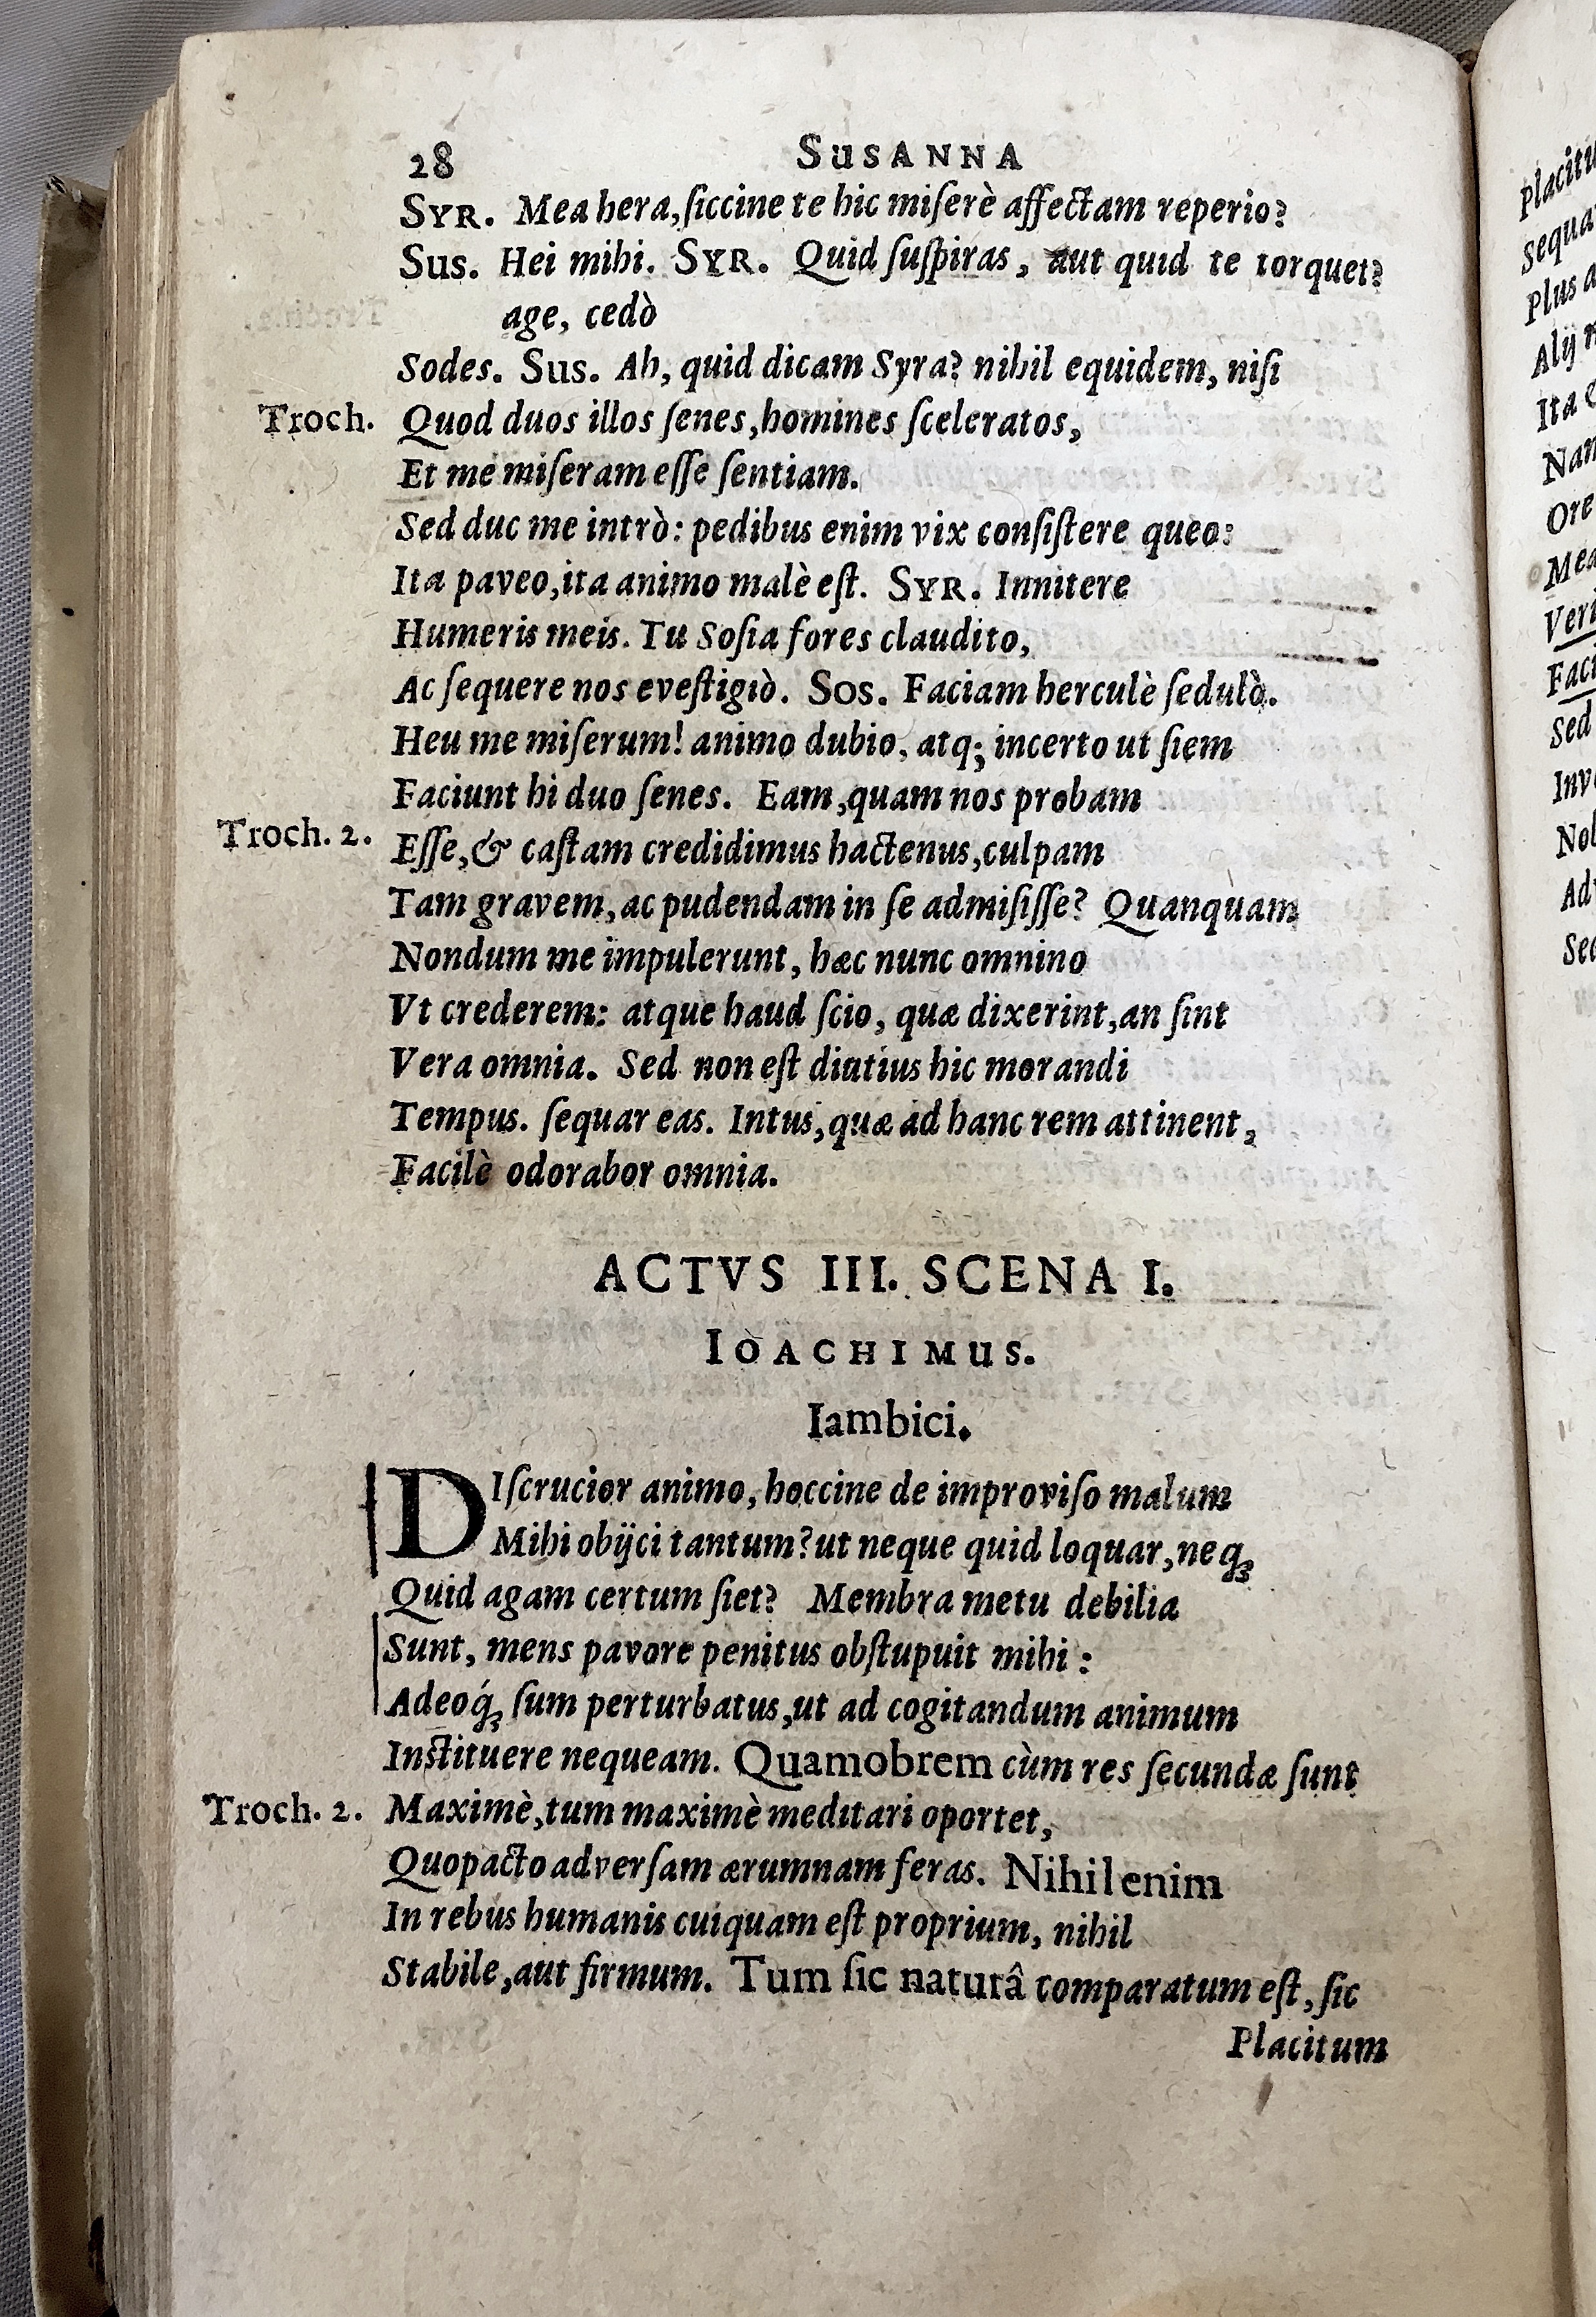 28 SusANNA
SYR. Mea hera, ſiccine te hic miſerè affectam reperio?
Sus. Hei mihi. SYR. Quid ſuſpiras, aut quid te torquet?
age, cedò
Sodes. Sus. Ah, quid dicam Syra? nihil equidem, niſi
Troch. Quod duos illos ſenes, homines ſceleratos,
Et me miſeram eſſe ſentiam.
Sed duc me intrò: pedibus enim vix conſiſtere queo:
Ita paveo, ita animo malè eſt. SYR. Innitere
Humeris meis. Tu Soſia fores claudito,
Ac ſequere nos eveſtigiò. Sos. Faciam herculè ſedulò.
Heu me miſerum! animo dubio, atq; incerto ut ſiem
Faciunt hi duo ſenes. Eam, quam nos probam
Troch. 2. Eſſe, & caſtam credidimus hactenus, culpam
Tam gravem, ac pudendam in ſe admiſiſſe? Quanquam
Nondum me impulerunt, hæc nunc omnino
Vt crederem: atque haud ſcio, quæ dixerint, an ſint
Vera omnia. Sed non eſt diutius hic morandi
Tempus. ſequar eas. Intus, quæ ad hanc rem attinent,
Facilè odorabor omnia.
ACTVS III. SCENA I.
IOACHIMus.
Iambici.
DIſcrucior animo, hoccine de improviſo malum
Mihi obijci tantum? ut neque quid loquar, neqꝫ
Quid agam certum ſiet? Membra metu debilia
Sunt, mens pavore penitus obſtupuit mihi:
Adeoq́ꝫ ſum perturbatus, ut ad cogitandum animum
Inſtituere nequeam. Quamobrem cùm res ſecundæ ſunt
Troch. 2. Maximè, tum maximè meditari oportet,
Quopacto adverſam ærumnam feras. Nihil enim
In rebus humanis cuiquam eſt proprium, nihil
Stabile, aut firmum. Tum ſic naturâ comparatum eſt, ſic
Placitum